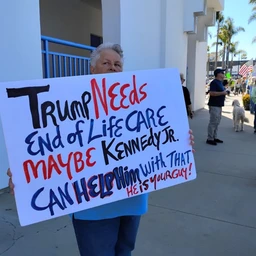 TRUMP NEEDS
END OF LIFE CARE
MAYBE KENNEDY JR.
CAN HELP HIM WITH THAT
HE IS YOUR GUY!